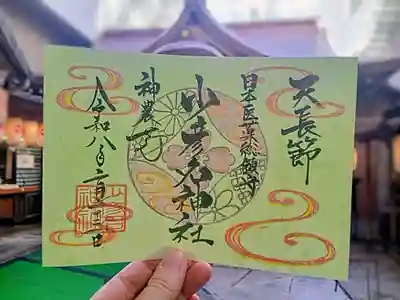 天長節
日本医薬総鎮守
少彦名神社
神農さん
令和八年二月二十三日